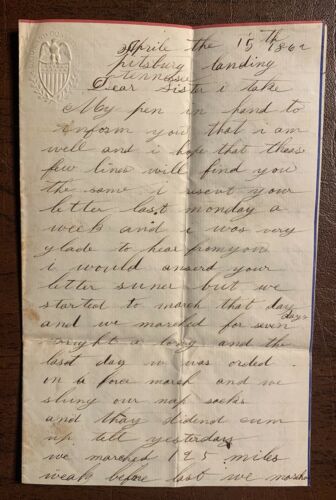 Aprile the 15th 1862
pitsburg landing
ternnesee
Dear Sister i take
My pen in hand to
inform you that i am
well and i hope that theas
few lines will find you
the same i resevt your
letter last monday a
week and i was very
glade to hear from you
i would anserd your
letter suner but we
started to march that day
and we marched for seven days
right a long and the
last day we was orded
on a force march and we
slung our nap socks
and thay didend cum
up till yesterday
we marched 125 miles
weak before last we marche